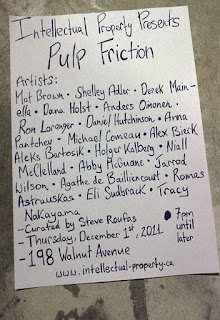 Intellectual Property Presents
Pulp Friction
Artists:
Mat Brown • Shelley Adler • Derek Main-
ella • Dana Holst • Anders Oinonen •
Ron Loranger • Daniel Hutchinson • Anna
Pantchev • Michael Comeau • Alex Bierk
Aleks Bartosik • Holger Kalberg • Niall
McClelland • Abby McGuane • Jarrod
Wilson • Agathe de Bailliencourt • Romas
Astrauskas • Eli Sudbrack • Tracy
Nakayama
- Curated by Steve Roufas
- Thursday, December 1st, 2011
• 7pm until later
- 198 Walnut Avenue
www.intellectual-property.ca